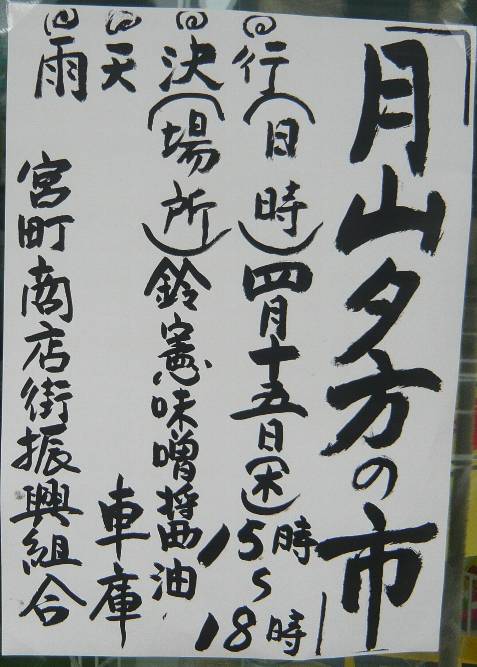 「月山夕方の市」
(日時)四月十五日(木)15時~18時
(場所)鈴憲味噌醤油
車庫
宮町商店街振興組合
雨天決行